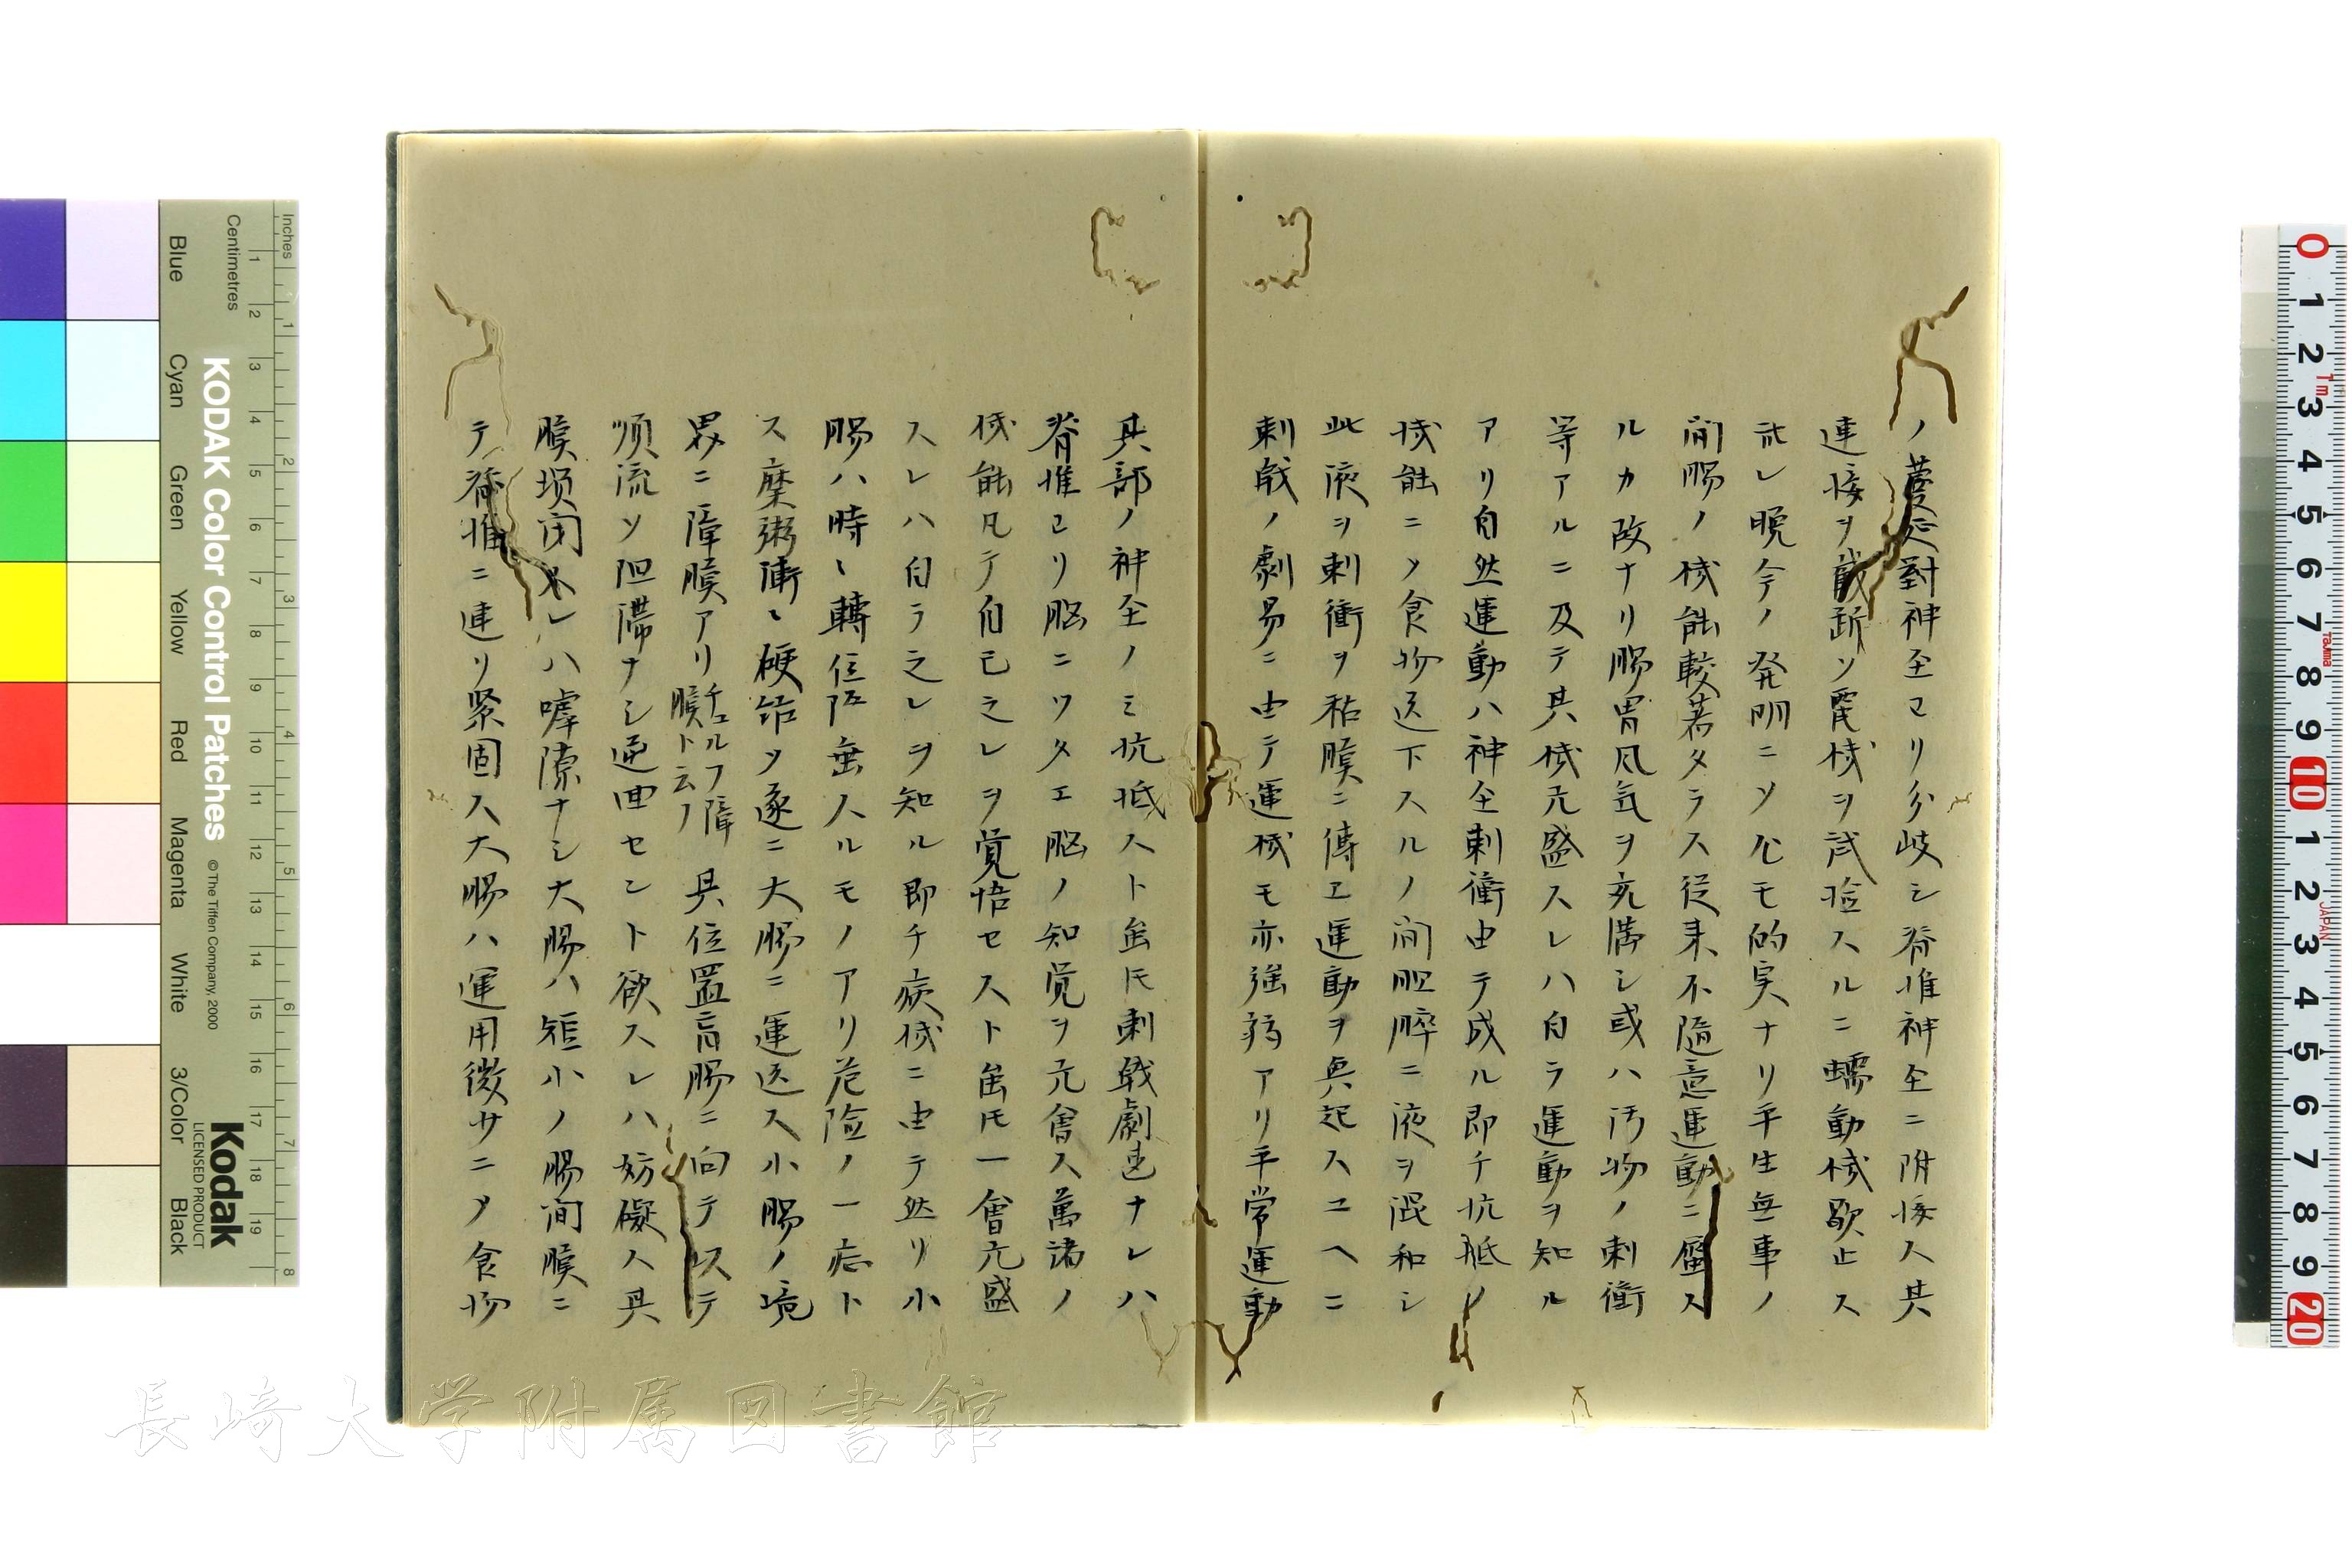 ノ蔓延對神圣ヨリ分岐シ脊椎神圣ニ附接ス其
連接ヲ截断ソ霓械ヲ試撿スルニ蠕動械歇止ス
此レ晩今ノ発明ニソ尤モ的実ナリ平生無事ノ
間腸ノ械能較著タラス従来不随意運動ニ属ス
ルカ故ナリ腸胃風気ヲ充満シ或ハ汚物ノ刺衝
等アルニ及テ其械亢盛スレハ自ラ運動ヲ知ル
アリ自然運動ハ神圣刺衝由テ成ル即チ抗抵ノ
械能ニソ食物送下スルノ間胆膵ニ液ヲ混和シ
此液ヲ刺衝ヲ粘膜ニ傳ヱ運動ヲ興起スユヘニ
刺戟ノ劇易ニ由テ運械モ亦強弱アリ平常運動
其部ノ神圣ノミ抗抵スト虽𪜈刺戟劇烈ナレハ
脊椎ヨリ脳ニツタエ脳ノ知覚ヲ亢會ス萬諸ノ
械能凡テ自己之レヲ覚悟セスト虽𪜈一會亢盛
スレハ自ラ之レヲ知ル即チ疾械ニ由テ然リ小
腸ハ時〻轉位陥垂入ルモノアリ危険ノ一症ト
ス糜粥漸〻硬結ソ遂ニ大腸ニ運送ス小腸ノ境
界ニ障膜アリ チュルフ障膜ト云フ 其位置盲腸ニ向テ以テ
順流ソ阻滞ナシ逆回セント欲スレハ妨礙ス其
膜填閉スレハ嘑隙ナシ大腸ハ短小ノ腸間膜ニ
テ脊椎ニ連リ緊固ス大腸ハ運用微サニソ食物
Inches
Centimetres
KODAK Color Control Patches
© The Tiffen Company, 2000
Kodak
LICENSED PRODUCT
Blue Cyan Green Yellow Red Magenta White 3/Color Black
長崎大学附属図書館